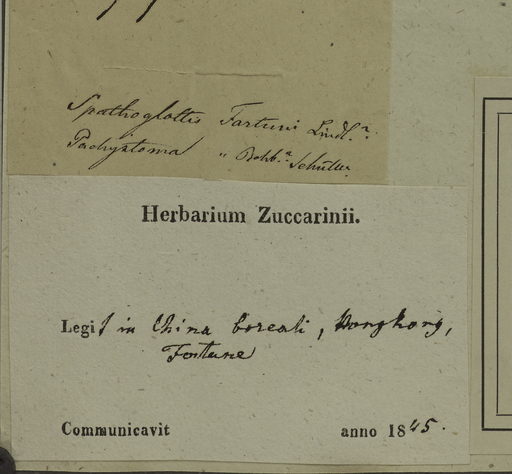 Spathoglottis Fortuni Lindl.
Pachystoma " Rchb.
Herbarium Zuccarinii.
Legit in China boreali, Hongkong,
Fortune
Communicavit anno 1845.